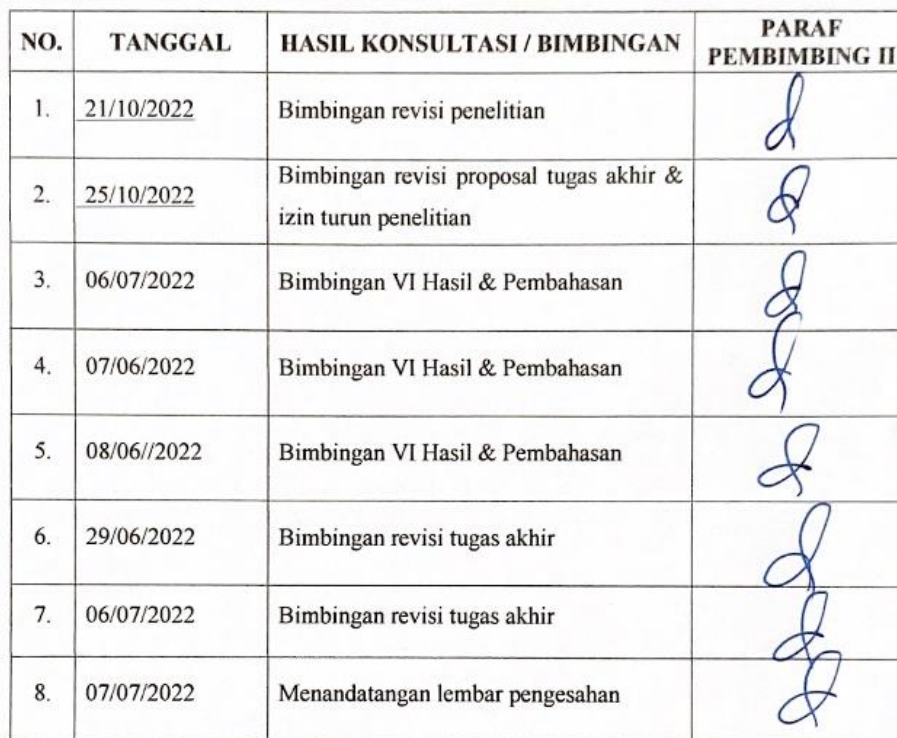 NO. TANGGAL HASIL KONSULTASI / BIMBINGAN PARAF PEMBIMBING II
1. 21/10/2022 Bimbingan revisi penelitian
2. 25/10/2022 Bimbingan revisi proposal tugas akhir &
izin turun penelitian
3. 06/07/2022 Bimbingan VI Hasil & Pembahasan
4. 07/06/2022 Bimbingan VI Hasil & Pembahasan
5. 08/06//2022 Bimbingan VI Hasil & Pembahasan
6. 29/06/2022 Bimbingan revisi tugas akhir
7. 06/07/2022 Bimbingan revisi tugas akhir
8. 07/07/2022 Menandatangan lembar pengesahan